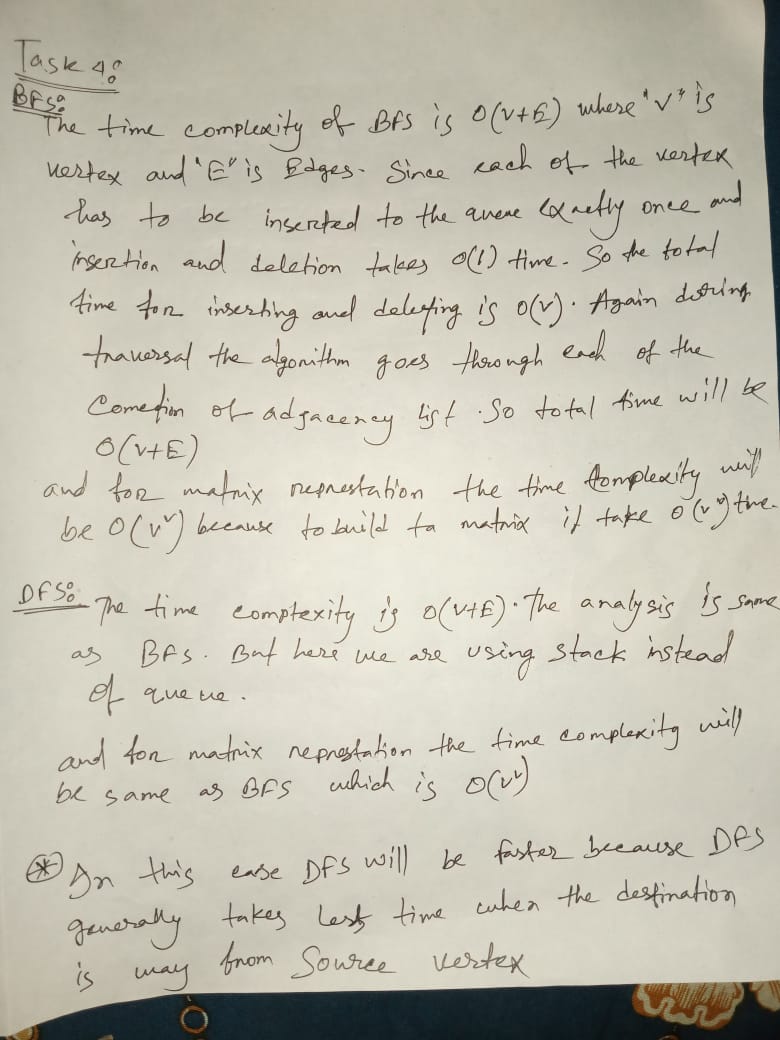 Task 4:
BFS:
The time complexity of BFS is O(V+E) where "V" is
vertex and "E" is Edges. Since each of the vertex
has to be inserted to the queue exactly once and
insertion and deletion takes O(1) time. So the total
time for inserting and deleting is O(V). Again during
traversal the algorithm goes through each of the
of adjacency list. So total time will be
O(V+E)
and for matrix represtation the time complexity will
be O(V²) because to build ta matrix it take O(V²) time.
DFS: The time comptexity is O(V+E). The analysis is same
as BFS. But here we are using stack instead
of queue.
and for matrix represtation the time complexity will
be same as BFS which is O(V²)
* In this case DFS will be faster because DFS
generally takes less time when the destination
is way from Source vertex